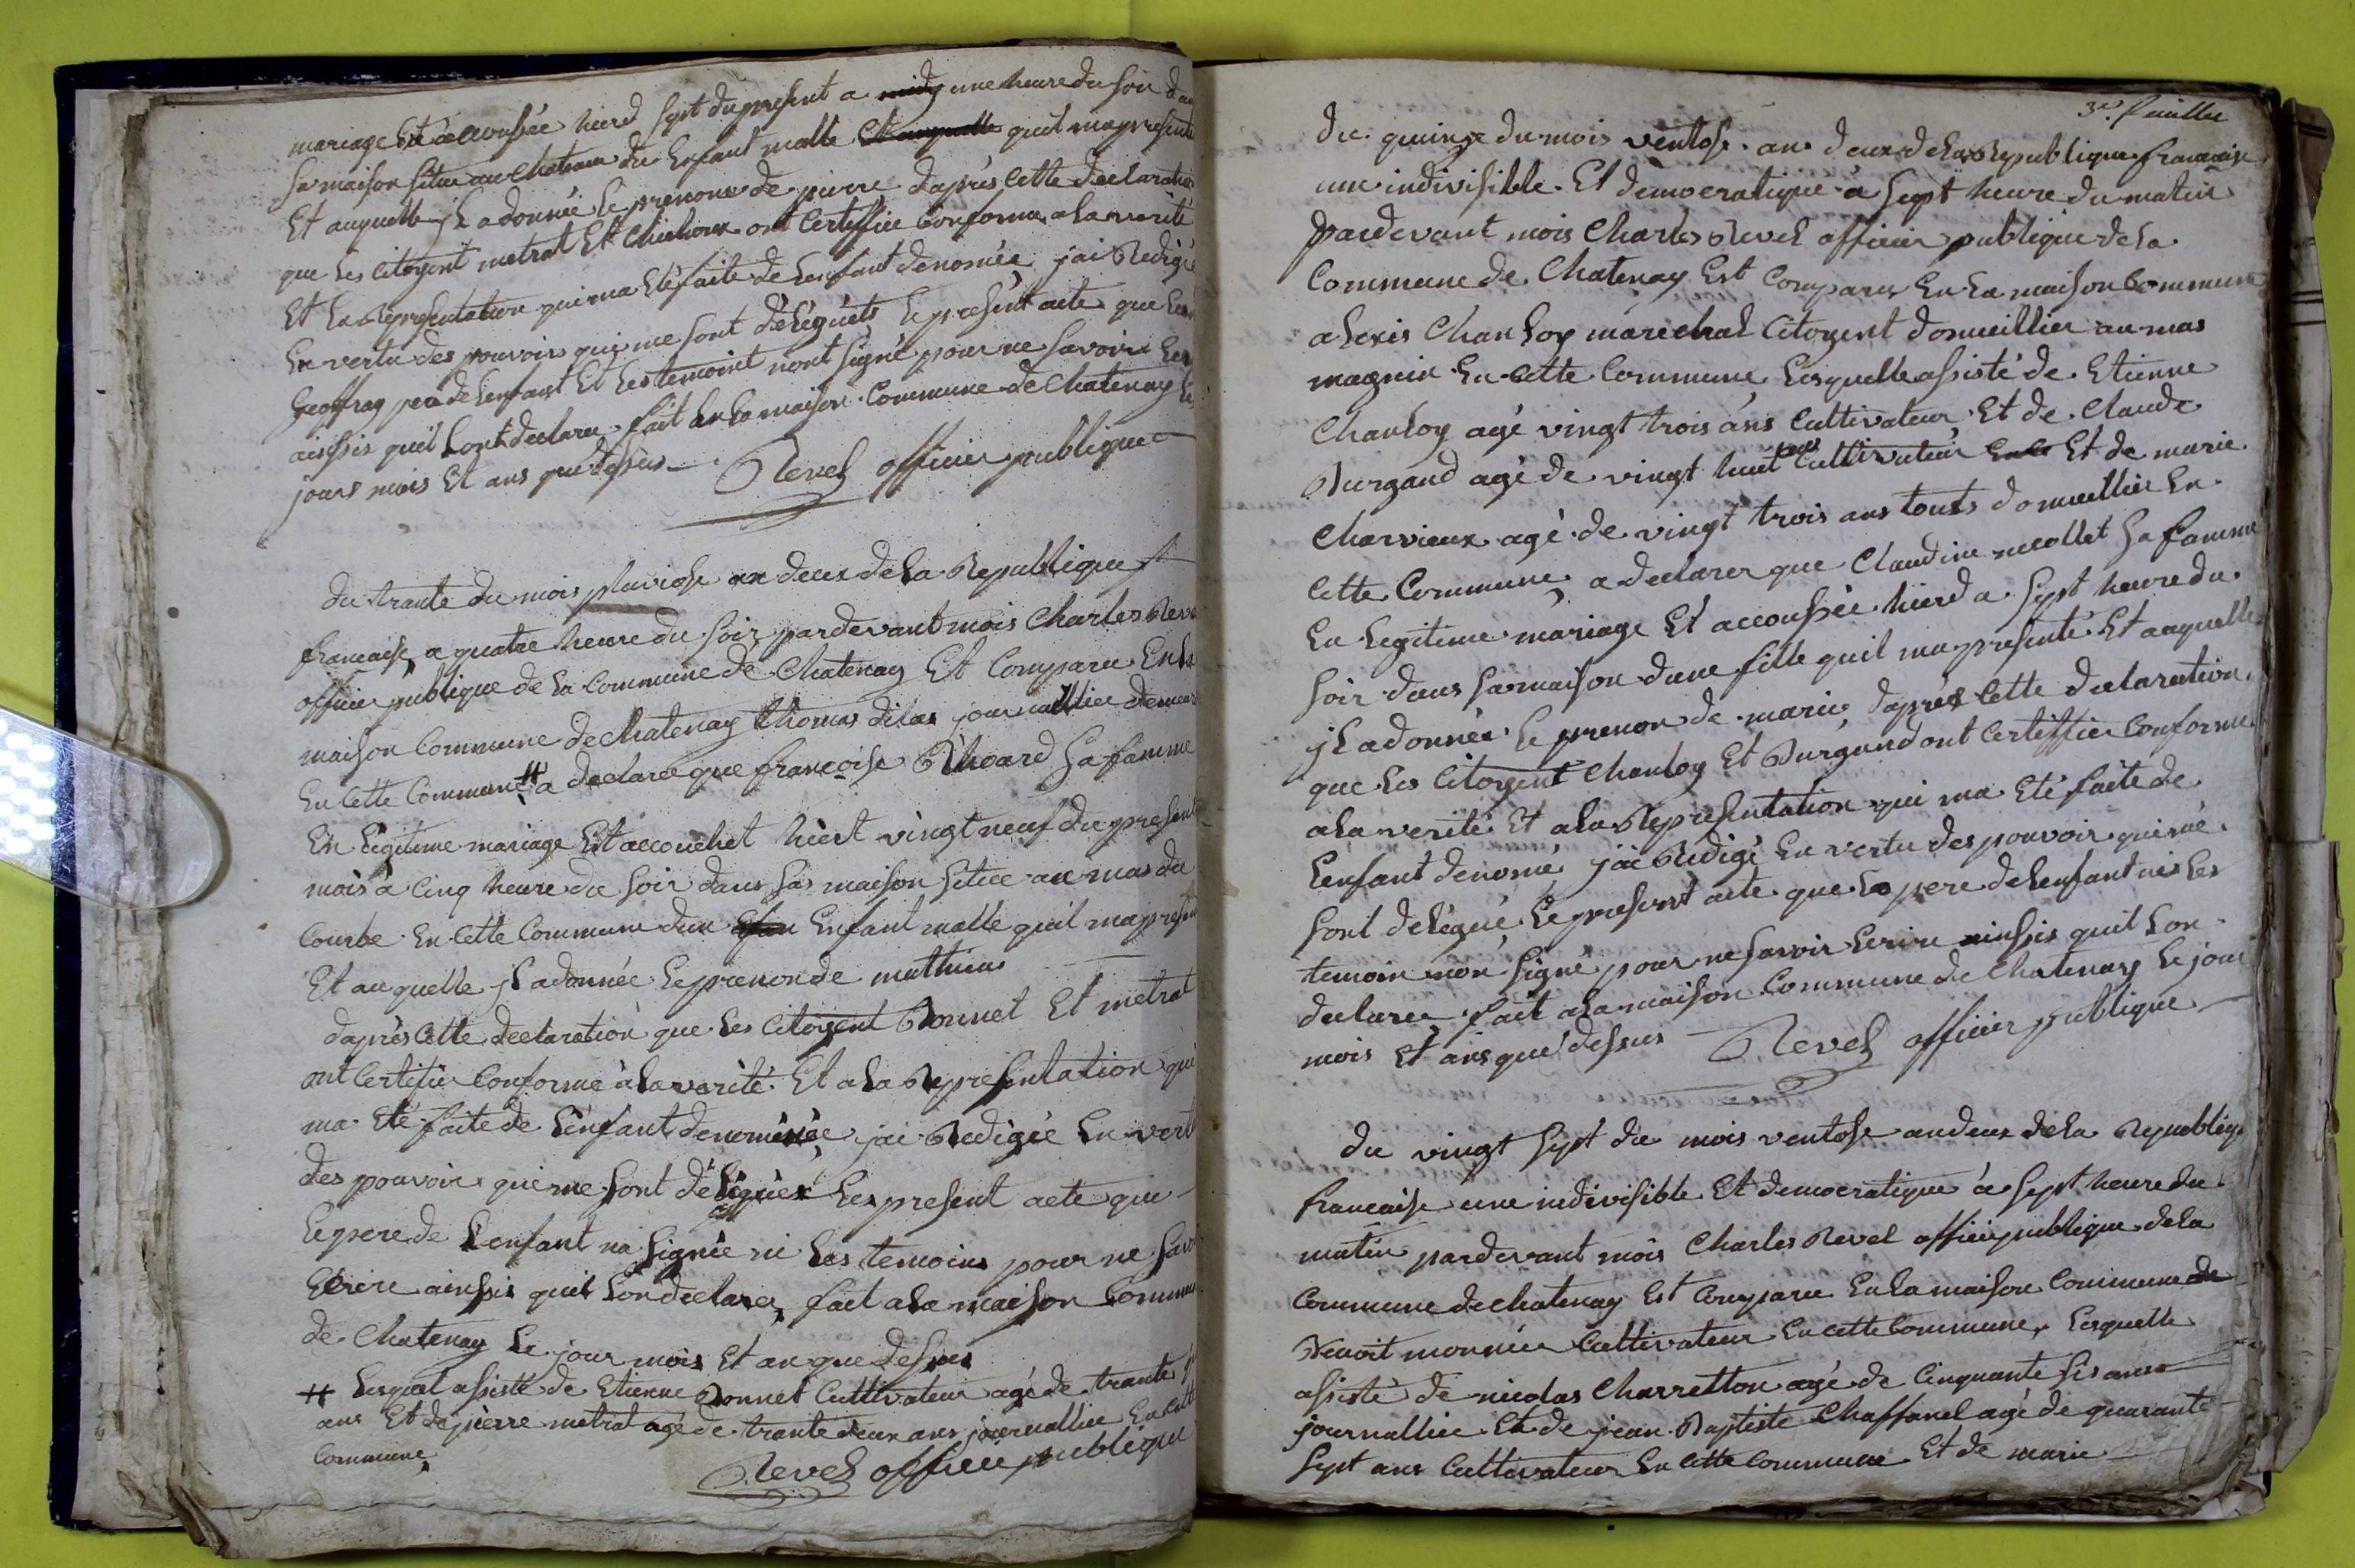 mariage Est accoussée hierd sept du present a midy une heure du soir dan
sa maison situe au Chateau du Enfant malle Et auquelle quil ma presenté
Et auquelle jl a donnée le prenome de pierre daprès Cette declaration
que les Citoyent metrat Et Chichoux ont Certiffiée Conforme a la verité
Et la Representation qui ma Eté faite de Lenfant denomée jai Redigée
En vertu des pouvoirs qui me sont délégués le présent acte que
Geoffray pere de Lenfant Et Les temoint nont signé pour ne savoir
ainssis quil Lont declaré fait En La maison Commune de Chatenay Les
jours mois Et ans que dessus Revel officier publique
du trante du mois pluviose an deux de la Republique
francaise a quatre heure du soir pardevant mois Charles Reve
officier publique de la Commune de Chatenay Est Comparu En la
maison Commune de Chatenay Thomas dilas journallier demeur
En Cette Commune # a declaree que francoise Rhoard sa famme
En legitime mariage Est accouchet hiert vingt neuf du present
mois à Cinq heure du soir dans sa maison situe au mas du
Courbe En Cette Commune dun Enfant malle quil ma presen
Et auquelle jl a donnée le prenon de mathieus
daprès Cette declaration que les Citoyent Bonnet Et metrat
ont Certifier Conforme à la varité Et a la Representation qui
ma Eté faite de Lénfant denomée jai Redigée En vert
des pouvoir qui me sont délégués Les present acte que
le pere de Lenfant na signée ni Les temoins pour ne sav
Ecrire ainssis quil Lon declarer fait a la maison Commun
de Chatenay Le jour mois Et an que dessus
# Lesquel assisté de Etienne Bonnet Cultivateur agé de trante
ans Et de pierre metrat agé de trante deux ans journallier En Cett
Commune Revel officier publique
3e. fuillu
du quinze du mois ventose an deux de la Republique francaise
une indivisible Et democratique à sept heure du matin
pardevant mois Charles Revel officier publique de la
Commune de Chatenay Est Comparu En La maison Commune
alexis Chanloy marechal Citoyent domicillier au mas
magnin En Cette Commune Lesquelle assisté de Etienne
Chanloy agé vingt trois ans Cultivateur Et de Claude
Burgand agé de vingt huit ans Cultivateur Et de marie
Charvieux agé de vingt trois ans touts domicillier En
Cette Commune a declarer que Claudine necollet sa famme
En Legitime mariage Et accoussée hierd a sept heure du
soir dans sa maison dune fille quil ma presenté Et auquelle
jl a donnée le prenon de marie daprès Cette declaration
que les Citoyent Chanloy Et Burgand ont Certiffier Conforme
a la verité Et a la Representation qui ma Eté faite de
Lenfant denomé jai Redigé En vertu des pouvoir qui me
sont delégué Le present acte que Le pere de Lenfant nis Les
temoin non signé pour ne savoir Ecrire ainssis quil Lon
declarer fait a la maison Commune de Chatenay Le jour
mois Et ans que dessus Revel officier publique
du vingt sept du mois ventose an deux de la Republiq
francaise une indivisible Et democratique à sept heure du
matin pardevant mois Charles Revel officier publique de la
Commune de Chatenay Est Comparu En La maison Commune
Benoit monnier Cultivateur En Cette Commune Lesquelle
assisté de nicolas Charretton agé de Cinquante sis ans
journallier Et de jean Baptiste Chaffanel agé de quarante
sept ans Cultivateur En Cette Commune Et de marie